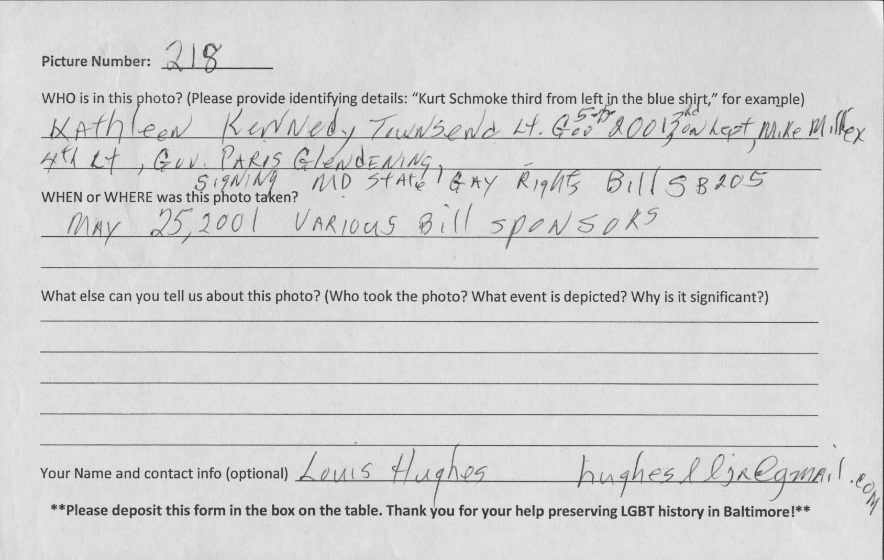 Picture Number: 218
WHO is in this photo? (Please provide identifying details: “Kurt Schmoke third from left in the blue shirt,” for example)
5th
Kathleen Kennedy Townsend Lt. Gov 2001 3rd on Lept, Mike Miller
4th Lt, Gov. PARIS Glendening,
SIGNING MD State GAY Rights Bill SB205
WHEN or WHERE was this photo taken?
MAY 25, 2001 VARIOUS Bill SPONSORS
What else can you tell us about this photo? (Who took the photo? What event is depicted? Why is it significant?)
Your Name and contact info (optional) Louis Hughes hugheslljr@gmail.com
**Please deposit this form in the box on the table. Thank you for your help preserving LGBT history in Baltimore!**